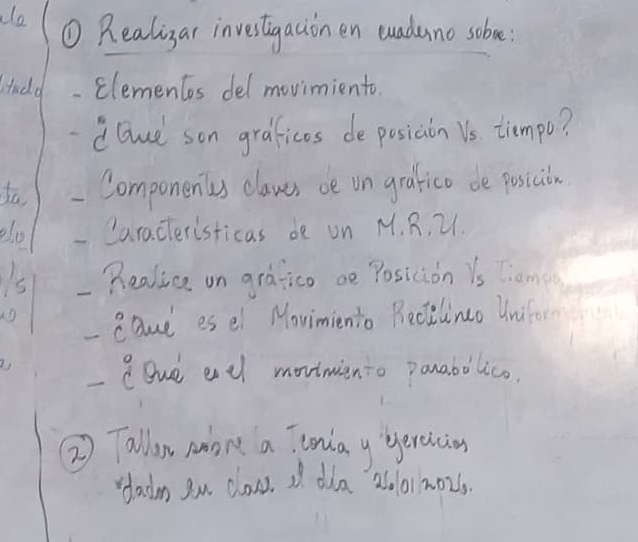 ① Realizar investigación en cuaderno sobre:
- Elementos del movimiento.
- ¿Qué son gráficos de posición Vs. tiempo?
- Componentes claves de un gráfico de posición.
- Características de un M.R.U.
- Realice un gráfico de Posición Vs Tiempo
- ¿Qué es el Movimiento Rectilíneo
- ¿Qué es el movimiento parabólico.
② Taller sobre la Teoría y ejercicios
dados en clase el día 26/01/2026.